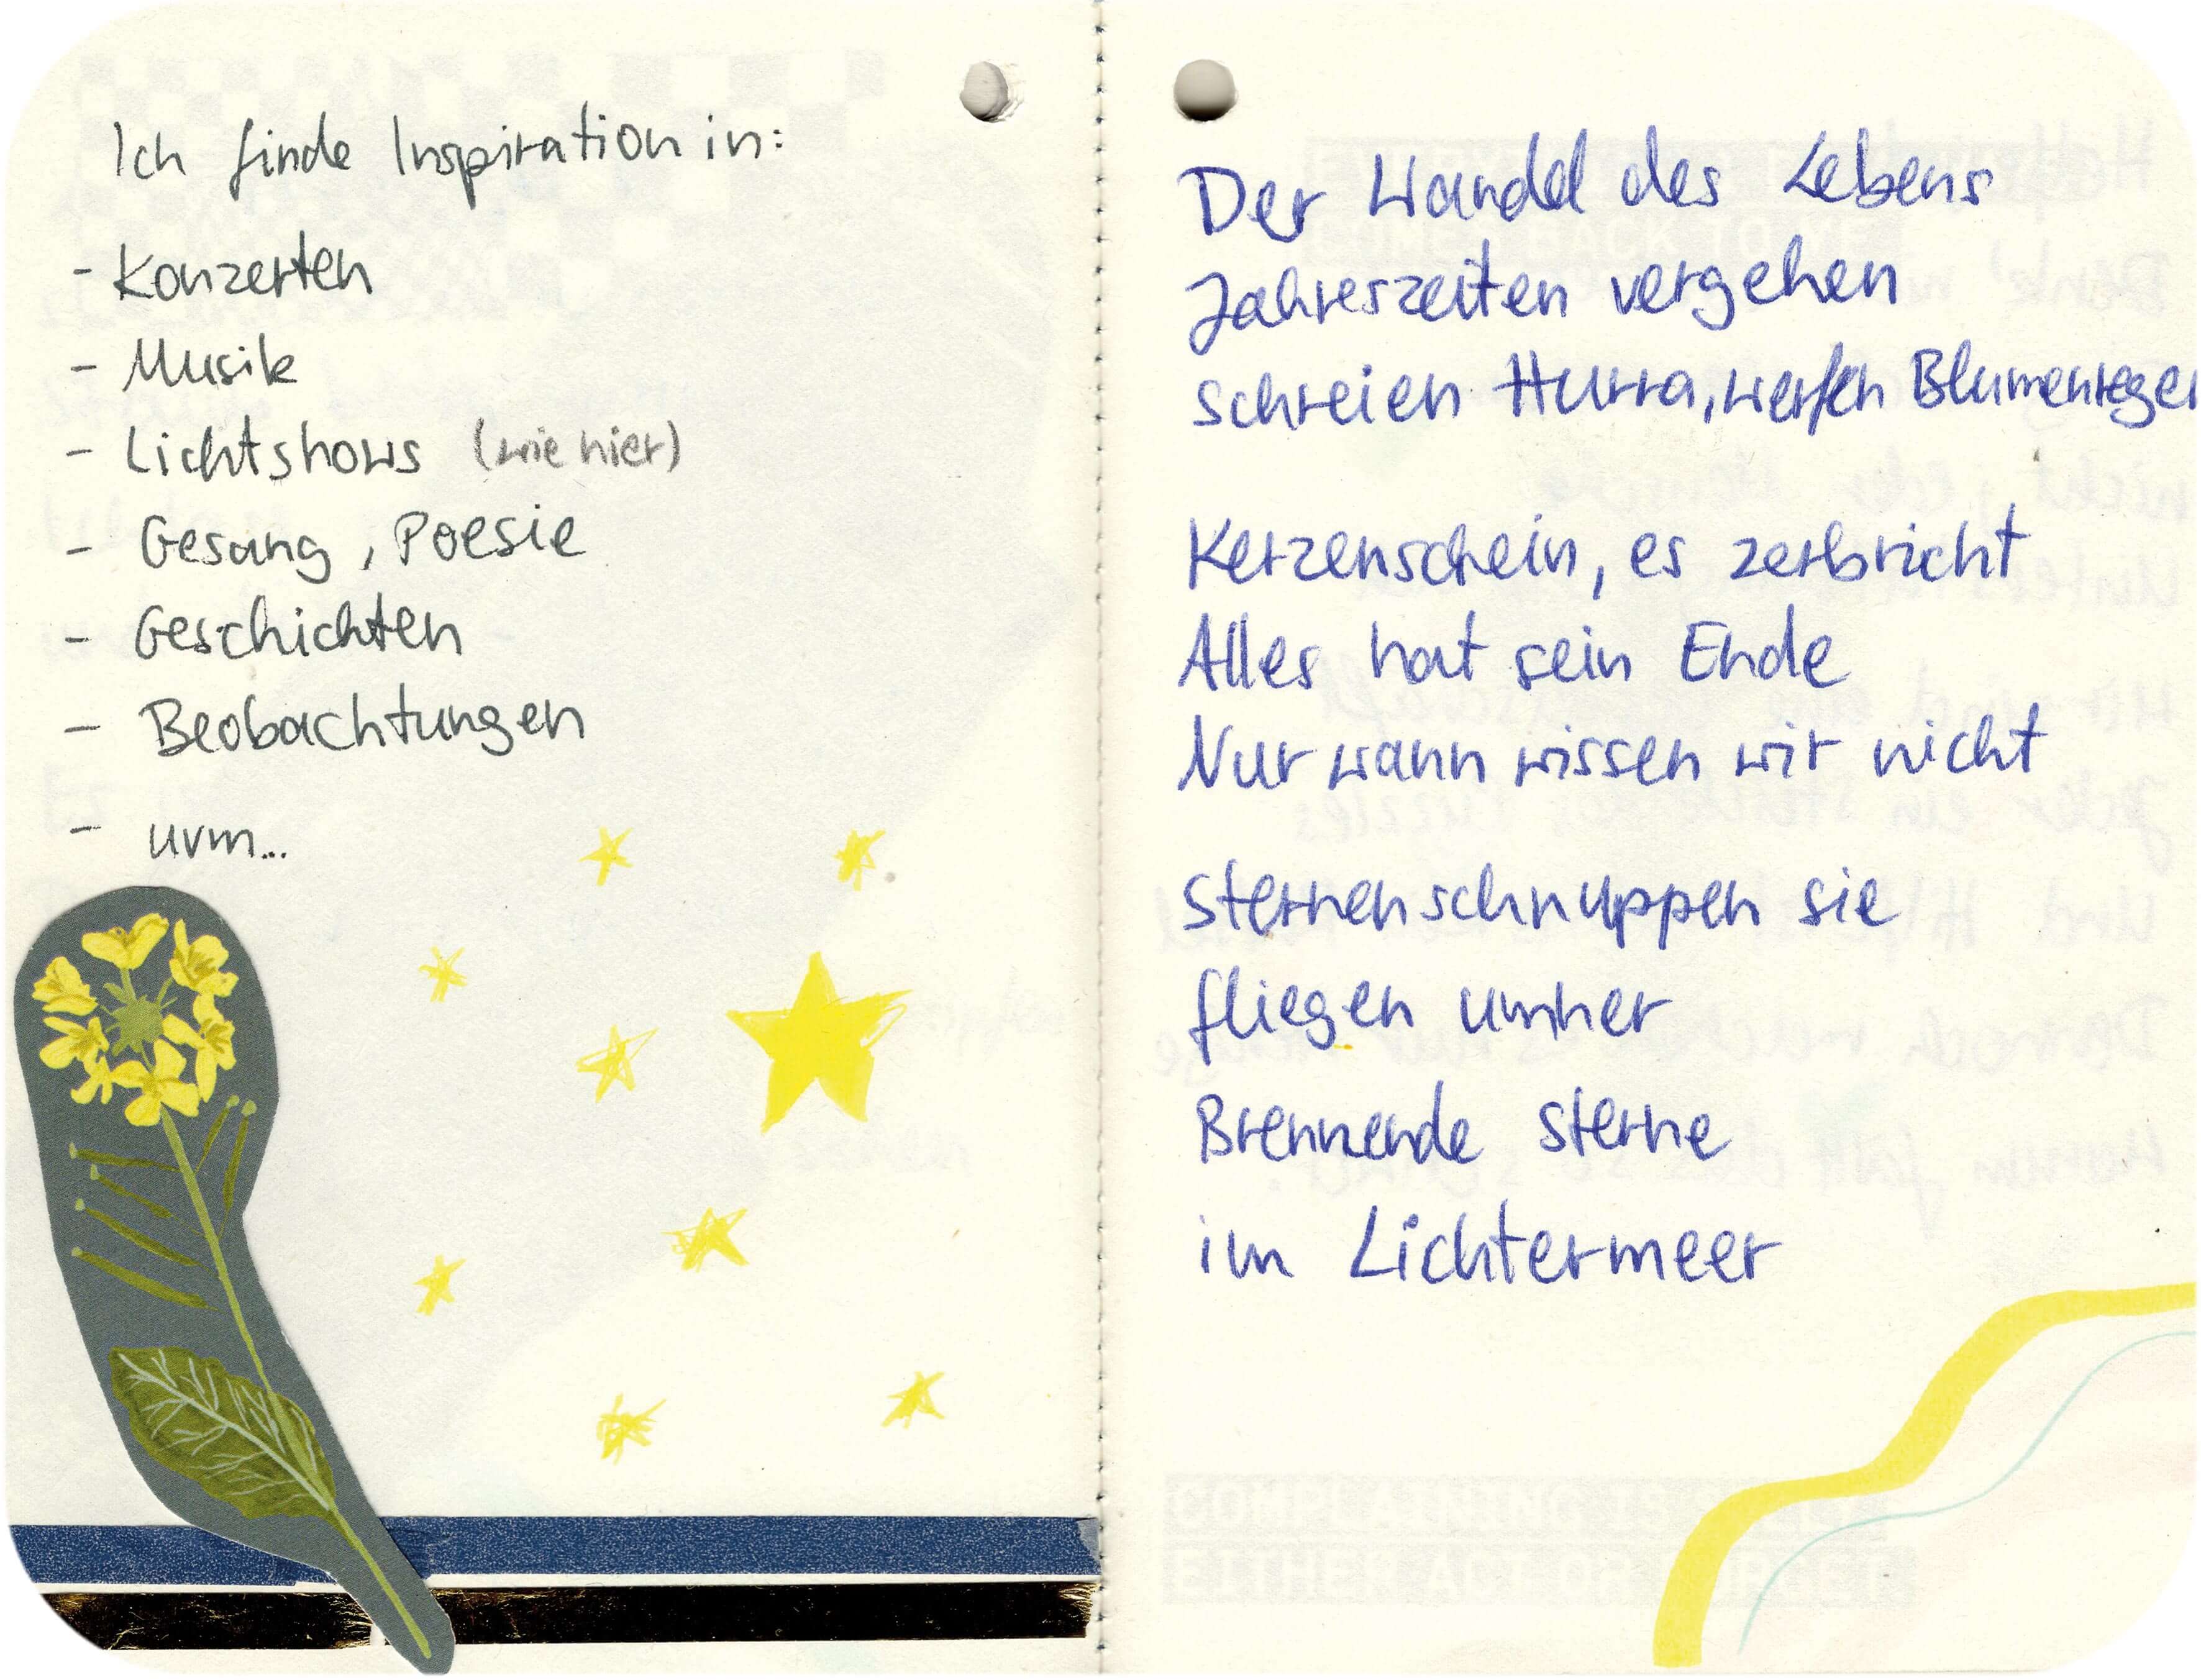 Ich finde Inspiration in:
- Konzerten
- Musik
- Lichtshows (wie hier)
- Gesang, Poesie
- Geschichten
- Beobachtungen
- uvm...
Der Wandel des Lebens
Jahreszeiten vergehen
schreien Hurra, werfen Blumenregen
Kerzenschein, es zerbricht
Alles hat sein Ende
Nur wann wissen wir nicht
Sternenschnuppen sie
fliegen umher
Brennende Sterne
im Lichtermeer